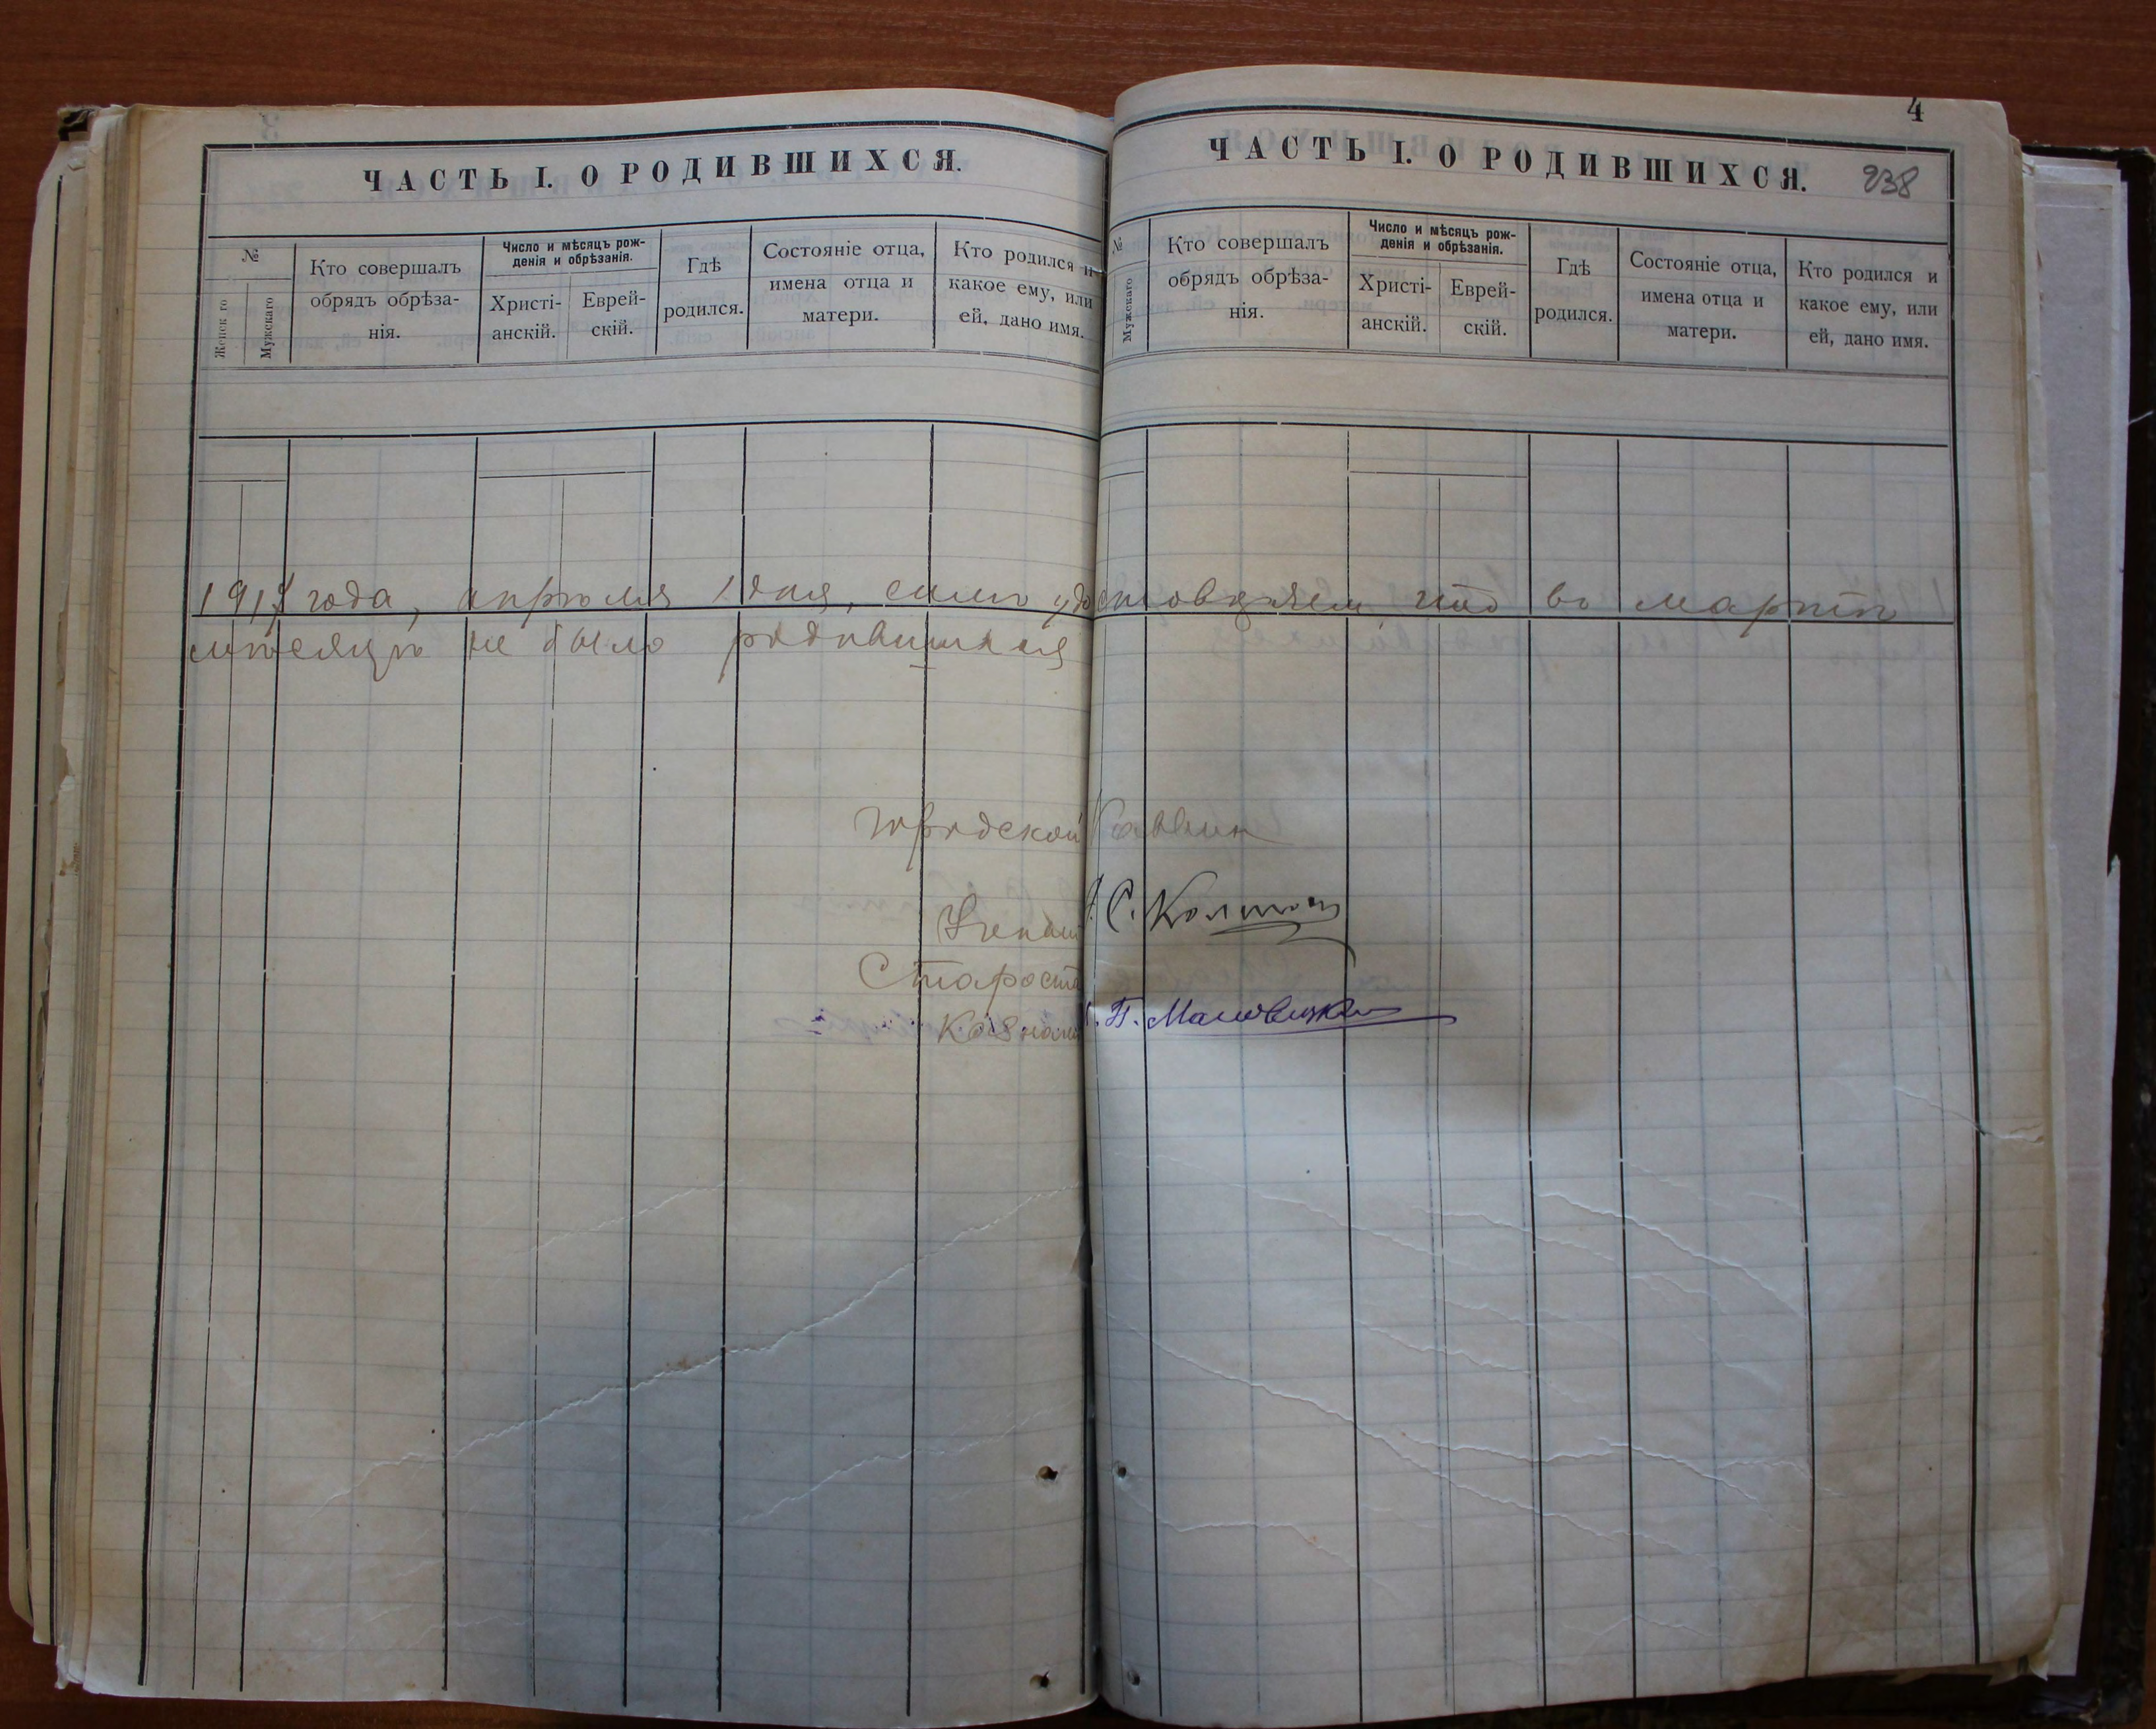 ЧАСТЬ I. О РОДИВШИХСЯ.
№
Женскаго
Мужскаго
Кто совершалъ
обрядъ обрѣза-
нія.
Число и мѣсяцъ рож-
денія и обрѣзанія.
Христі-
анскій.
Еврей-
скій.
Гдѣ
родился.
Состояніе отца,
имена отца и
матери.
Кто родился и
какое ему, или
ей, дано имя.
4
ЧАСТЬ I. О РОДИВШИХСЯ.
238
№
Мужскаго
Кто совершалъ
обрядъ обрѣза-
нія.
Число и мѣсяцъ рож-
денія и обрѣзанія.
Христі-
анскій.
Еврей-
скій.
Гдѣ
родился.
Состояніе отца,
имена отца и
матери.
Кто родился и
какое ему, или
ей, дано имя.
года, апрѣля 1 дня, симъ удостовѣряем что въ мартѣ
мѣсяцѣ не было родившихся
Городской Раввин
С.
Староста
Казначей